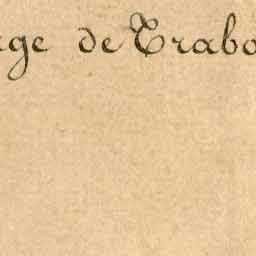 age de Trabo